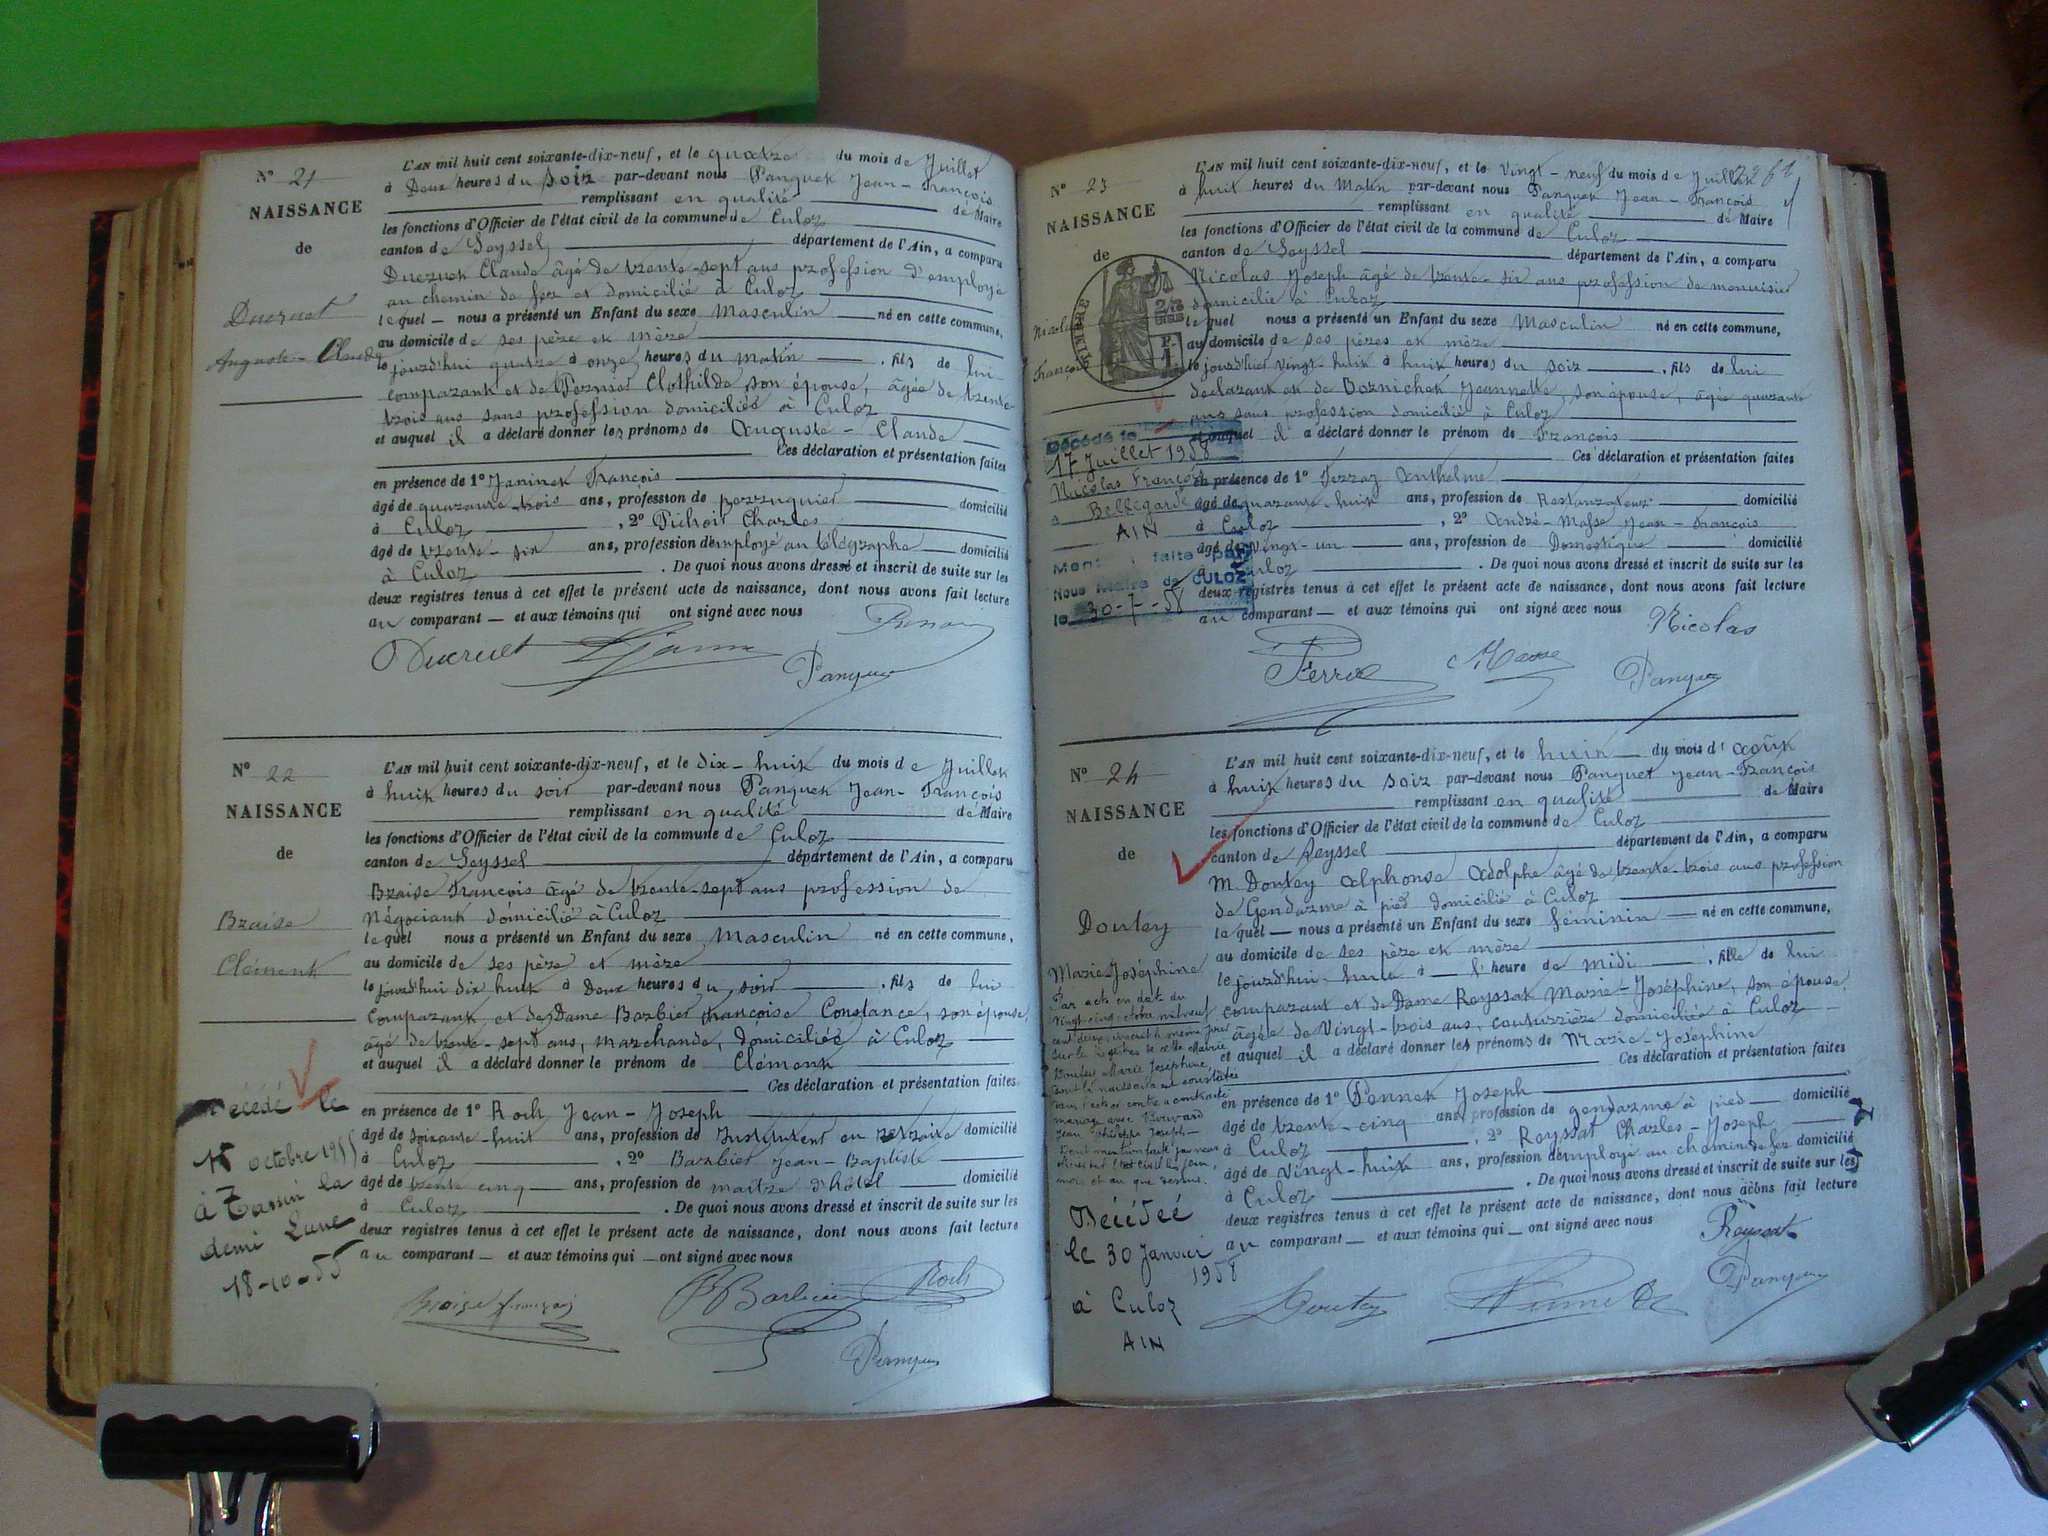 N° 21
NAISSANCE
de
Ducruet
Auguste-Claude
L'AN mil huit cent soixante-dix-neuf, et le quatre du mois de Juillet
à Deux heures du soir par-devant nous Panquet Jean-François
remplissant en qualité de Maire
les fonctions d'Officier de l'état civil de la commune de Culoz
canton de Seyssel département de l'Ain, a comparu
Ducruet Claude âgé de trente-sept ans profession d'employé
au chemin de fer et domicilié à Culoz
lequel nous a présenté un Enfant du sexe Masculin né en cette commune,
au domicile de ses père et mère
le jourd'hui quatre à onze heures du matin, fils de lui
comparant et de Pernier Clothilde son épouse, âgée de trente
trois ans sans profession domiciliés à Culoz
et auquel il a déclaré donner les prénoms de Auguste-Claude
Ces déclaration et présentation faites
en présence de 1° Janinet François
âgé de quarante-trois ans, profession de perruquier domicilié
à Culoz, 2° Pichoir Charles
âgé de trente-six ans, profession d'employé au télégraphe domicilié
à Culoz. De quoi nous avons dressé et inscrit de suite sur les
deux registres tenus à cet effet le présent acte de naissance, dont nous avons fait lecture
au comparant et aux témoins qui ont signé avec nous
Ducruet
Panquet
N° 22
NAISSANCE
de
Braise
Clément
L'AN mil huit cent soixante-dix-neuf, et le dix-huit du mois de Juillet
à huit heures du soir par-devant nous Panquet Jean-François
remplissant en qualité de Maire
les fonctions d'Officier de l'état civil de la commune de Culoz
canton de Seyssel département de l'Ain, a comparu
Braise François âgé de trente-sept ans profession de
Négociant domicilié à Culoz
lequel nous a présenté un Enfant du sexe Masculin né en cette commune,
au domicile de ses père et mère
le jourd'hui dix huit à Deux heures du soir, fils de lui
comparant et de Dame Barbier Françoise Constance, son épouse,
âgé de trente-sept ans, marchande, domiciliés à Culoz
et auquel il a déclaré donner le prénom de Clément
Ces déclaration et présentation faites
en présence de 1° Roch Jean-Joseph
âgé de soixante-huit ans, profession de Instituteur en retraite domicilié
à Culoz, 2° Barbier Jean-Baptiste
âgé de trente cinq ans, profession de maître d'hôtel domicilié
à Culoz. De quoi nous avons dressé et inscrit de suite sur les
deux registres tenus à cet effet le présent acte de naissance, dont nous avons fait lecture
au comparant et aux témoins qui ont signé avec nous
Décédé le
15 octobre 1955
à Tassin la
demi Lune
18-10-55
Braise françois
Barbier
Roch
Panquet
N° 23
NAISSANCE
de
Nicolas
François
L'AN mil huit cent soixante-dix-neuf, et le Vingt-neuf du mois de Juillet
à huit heures du Matin par-devant nous Panquet Jean-François
remplissant en qualité de Maire
les fonctions d'Officier de l'état civil de la commune de Culoz
canton de Seyssel département de l'Ain, a comparu
Nicolas Joseph âgé de trente-six ans profession de menuisier
domicilié à Culoz
lequel nous a présenté un Enfant du sexe Masculin né en cette commune,
au domicile de ses pères et mère
le jourd'hier vingt-huit à huit heures du soir, fils de lui
declarant et de Bornichet Jeannette, son épouse, âgée quarante
ans sans profession domicilié à Culoz
et auquel il a déclaré donner le prénom de François
Ces déclaration et présentation faites
en présence de 1° Ferraz Anthelme
âgé de quarante-huit ans, profession de Restaurateur domicilié
à Culoz, 2° André-Masse Jean-François
âgé de Vingt-un ans, profession de Domestique domicilié
à Culoz. De quoi nous avons dressé et inscrit de suite sur les
deux registres tenus à cet effet le présent acte de naissance, dont nous avons fait lecture
au comparant et aux témoins qui ont signé avec nous
Décédé le
17 Juillet 1958
Nicolas François
à Bellegarde
AIN
Ment faite par
Nous Maire de CULOZ
le 30-7-58
Nicolas
Masse
Panquet
N° 24
NAISSANCE
de
Doutey
Marie-Joséphine
L'AN mil huit cent soixante-dix-neuf, et le huit du mois d'août
à huit heures du soir par-devant nous Panquet Jean-François
remplissant en qualité de Maire
les fonctions d'Officier de l'état civil de la commune de Culoz
canton de Seyssel département de l'Ain, a comparu
M. Doutey Alphonse Adolphe âgé de trente-trois ans profession
de Gendarme à pied domicilié à Culoz
lequel nous a présenté un Enfant du sexe féminin né en cette commune,
au domicile de ses père et mère
le jourd'hui huit à l'heure de midi, fille de lui
comparant et de Dame Royssat Marie-Joséphine, son épouse,
âgée de Vingt-trois ans, couturière domiciliée à Culoz
et auquel il a déclaré donner les prénoms de Marie-Joséphine
Ces déclaration et présentation faites
en présence de 1° Pennet Joseph
âgé de trente-cinq ans, profession de gendarme à pied domicilié
à Culoz, 2° Royssat Charles-Joseph
âgé de Vingt-huit ans, profession d'employé au chemin de fer domicilié
à Culoz. De quoi nous avons dressé et inscrit de suite sur les
deux registres tenus à cet effet le présent acte de naissance, dont nous avons fait lecture
au comparant et aux témoins qui ont signé avec nous
Par acte en date du
vingt-cinq
Doutey Marie Joséphine
mariage avec
Décédée
le 30 Janvier
1958
à Culoz
AIN
Royssat
Doutey
Panquet